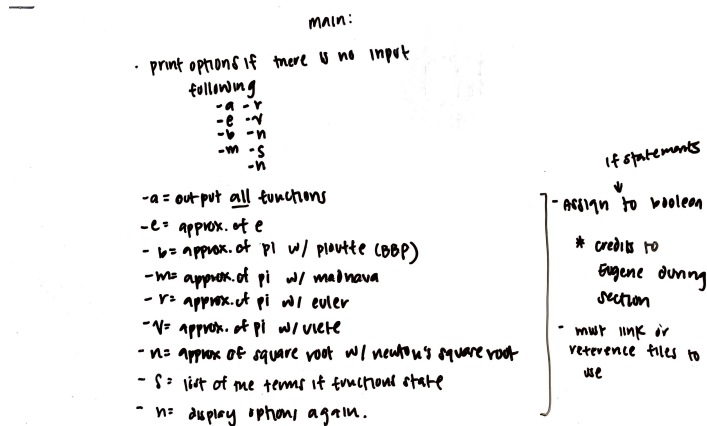 main:
· print options if there is no input
following
-a -r
-e -v
-b -n
-m -s
-h
-a = output all functions
-e = approx. of e
- b = approx. of pi w/ plouffe (BBP)
-m = approx. of pi w/ madhava
- r = approx. of pi w/ euler
-v = approx. of pi w/ viete
- n = approx of square root w/ newton's square root
- s = list of the terms if functions state
- h = display options again.
if statements
- Assign to boolean
* credits to
Eugene during
section
- must link or
reference files to
use